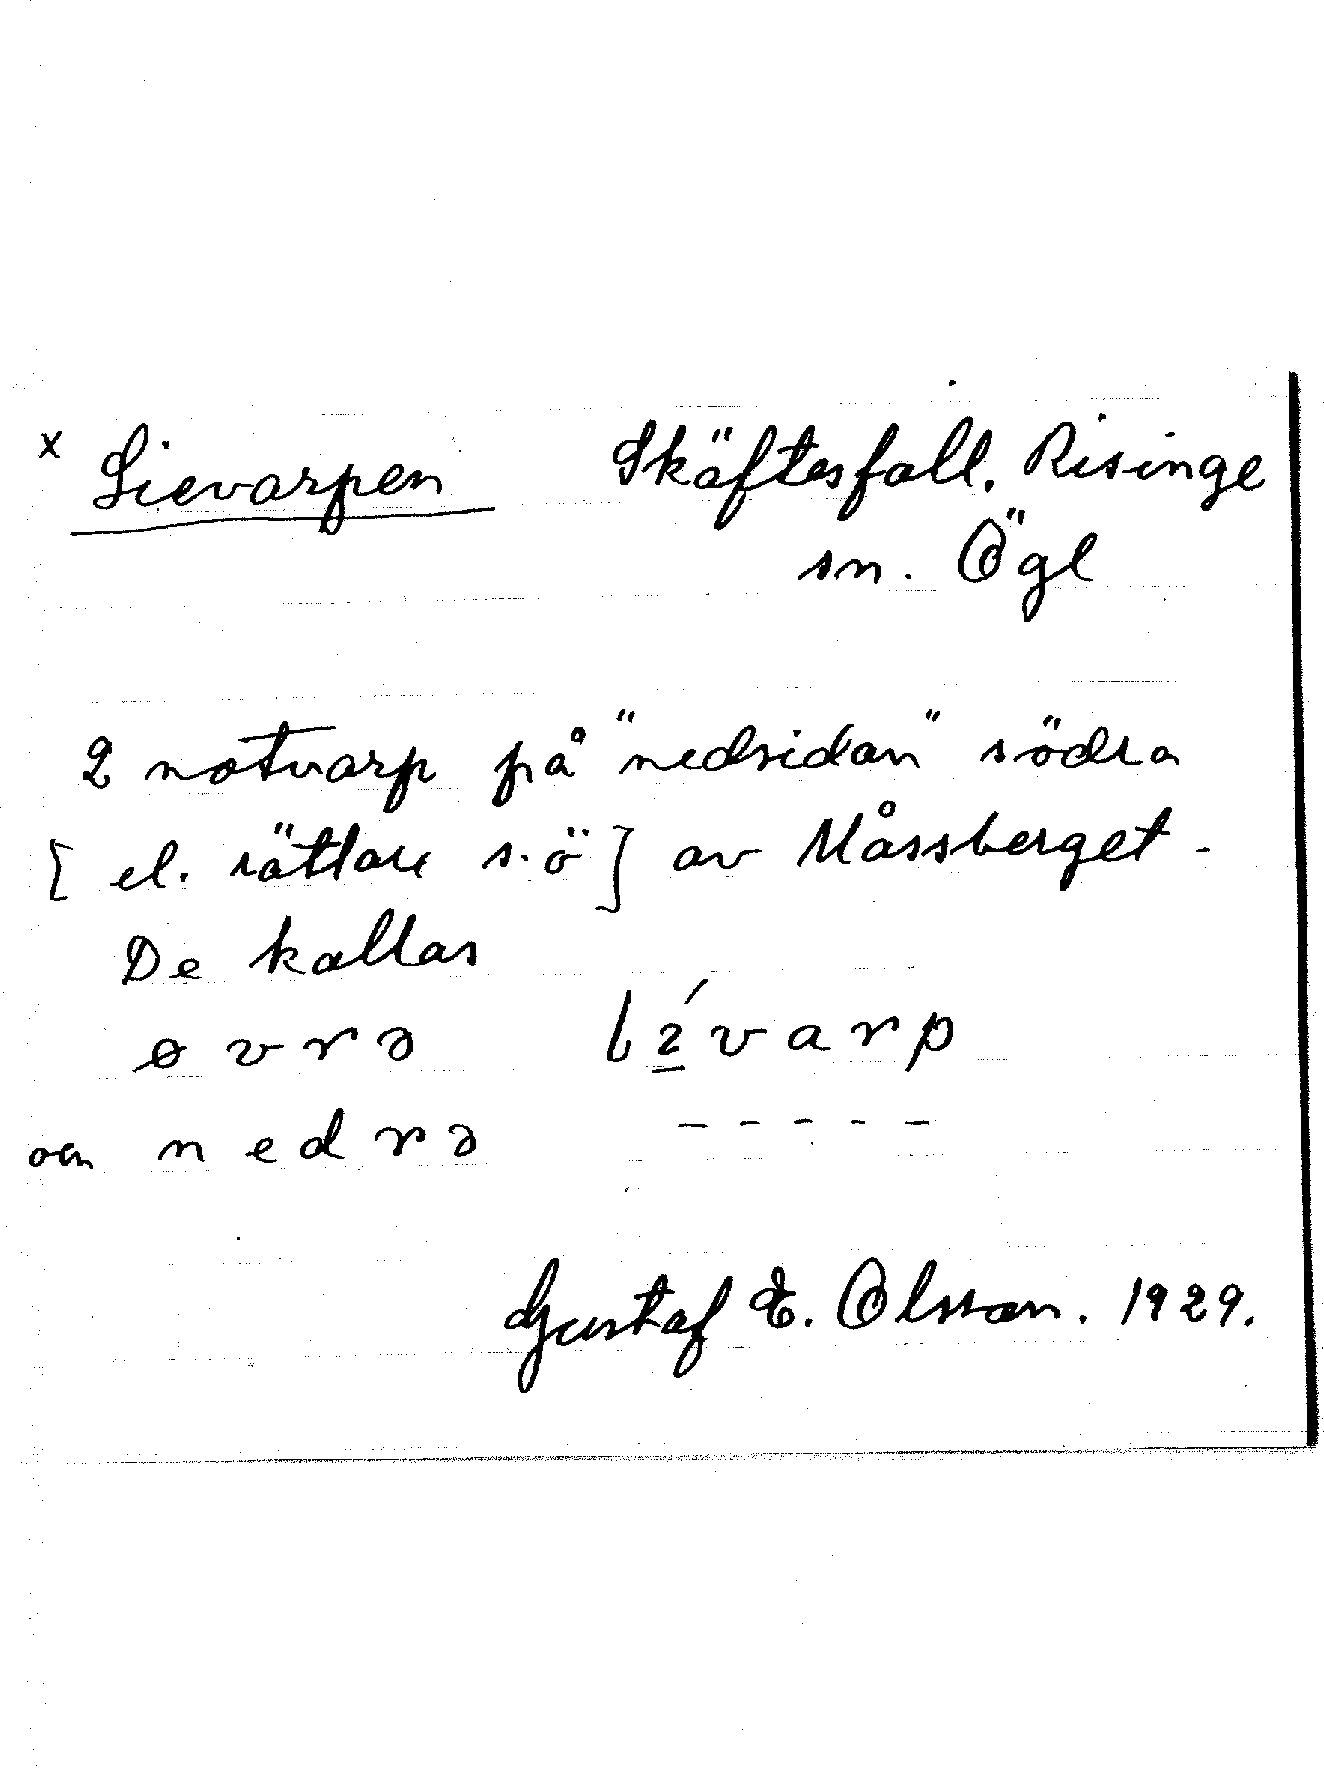 x Lievarpen Skäftesfall. Risinge
sn. Ögl
2 notvarp på "nedsidan" södra
[el. rättare s.ö] av Måssberget -
De kallas
øvrə lívarp
och nedrə - - - - -
Gustaf E. Olsson. 1929.